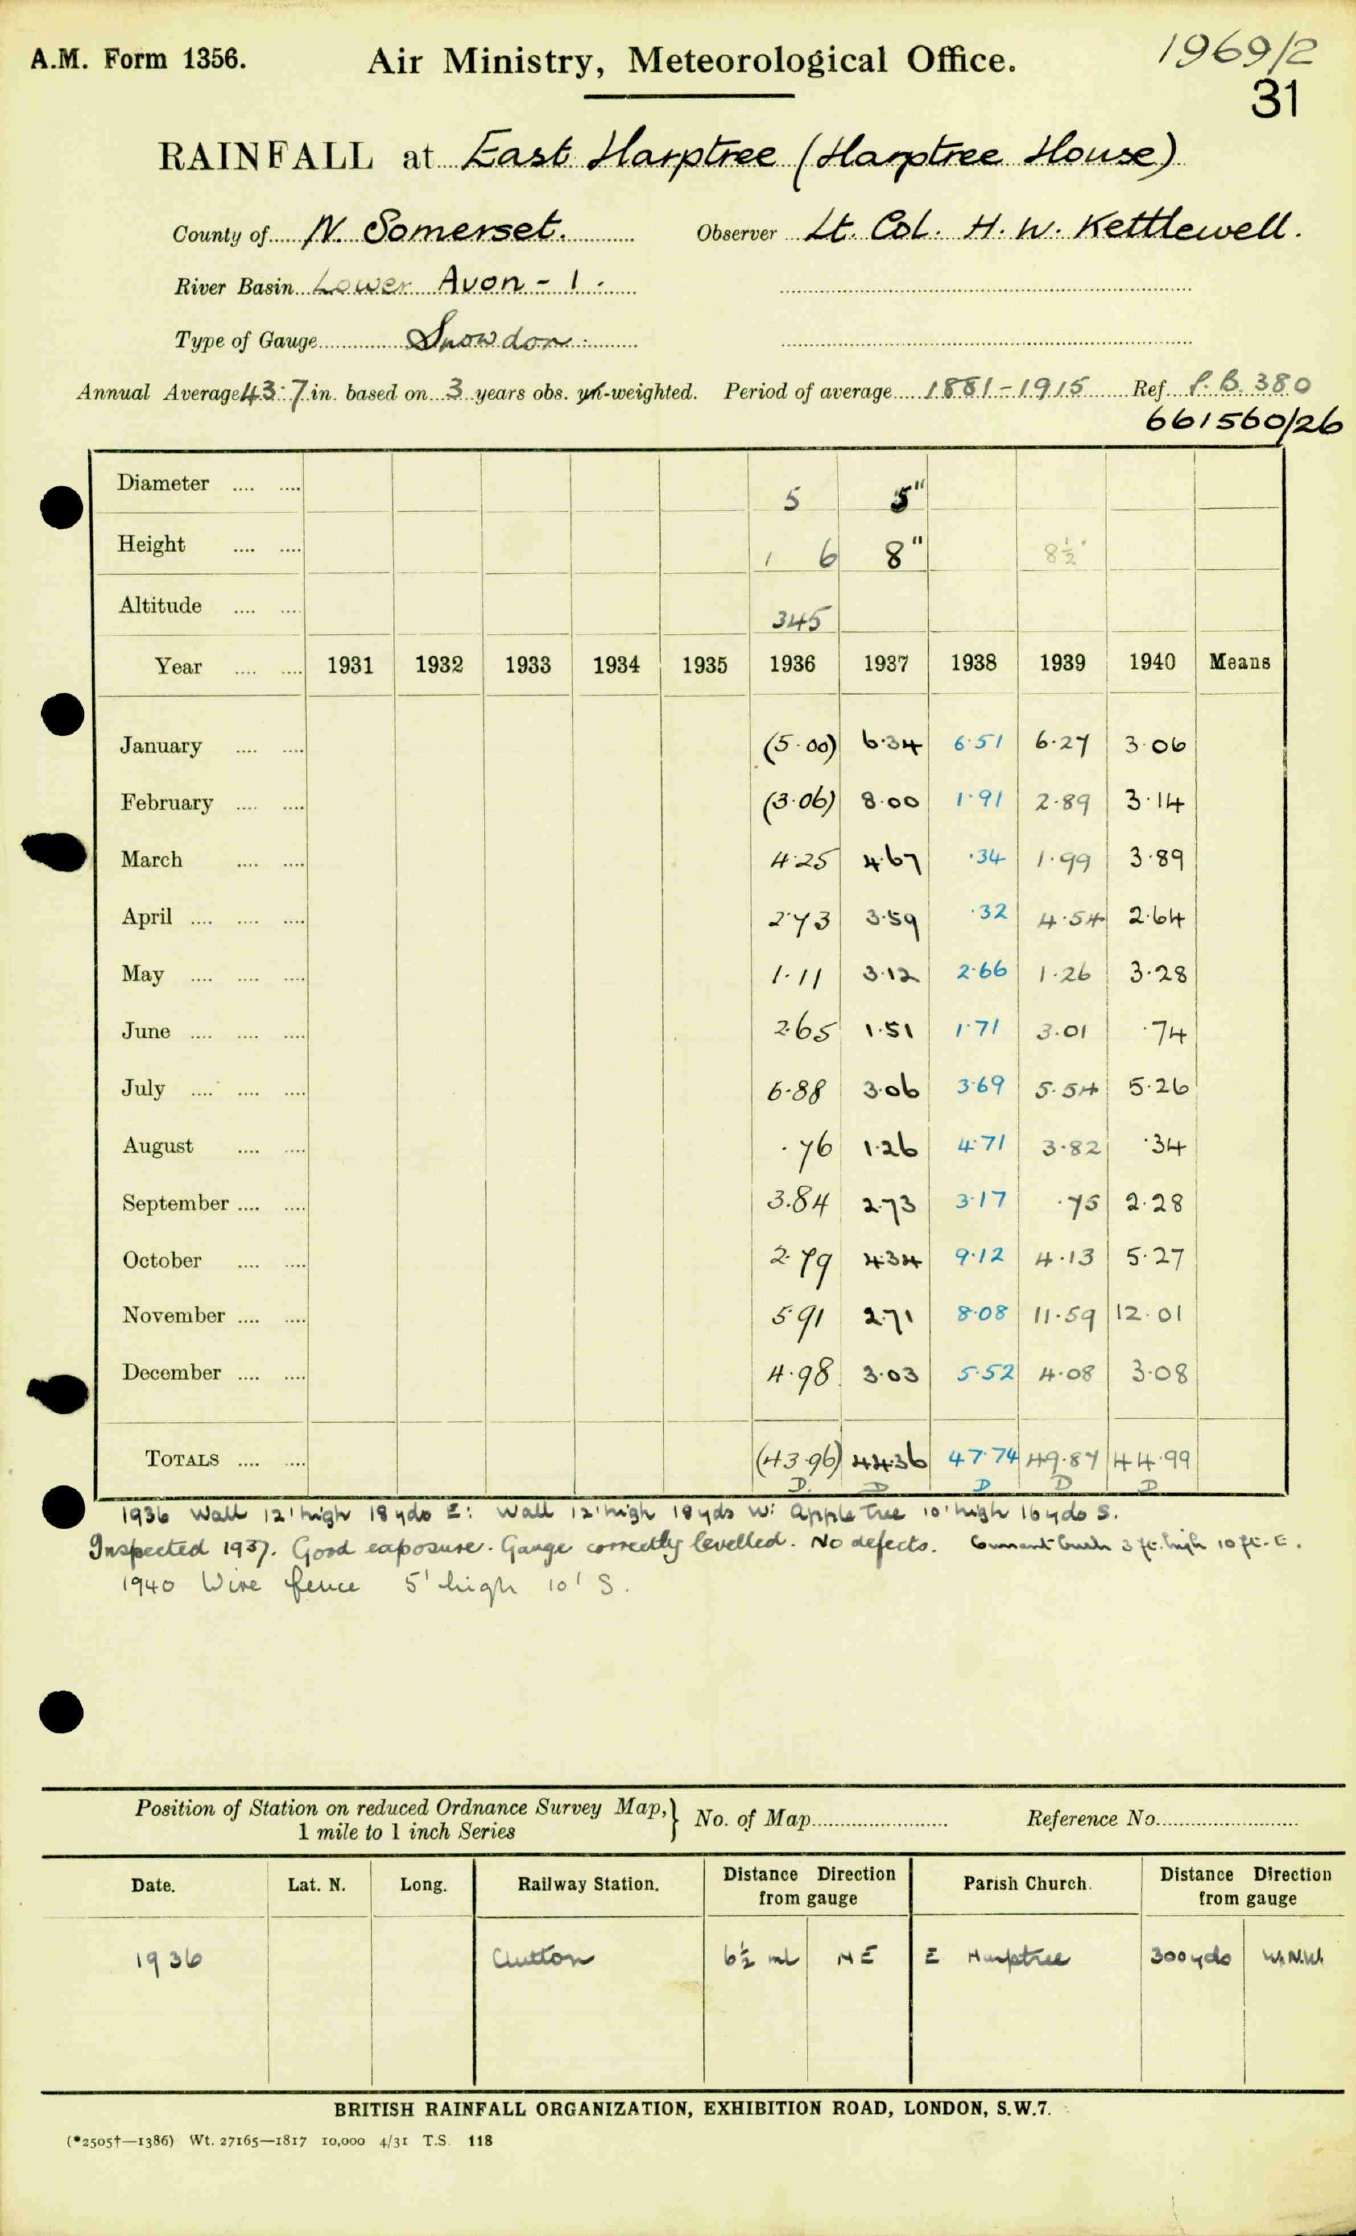 A.M. Form 1356.
Air Ministry, Meteorological Office.
1969/2
31
RAINFALL at East Harptree (Harptree House)
County of N. Somerset. Observer Lt. Col. H. W. Kettlewell.
River Basin Lower Avon - 1.
Type of Gauge Snowdon
Annual Average 43.7 in. based on 3 years obs. un-weighted. Period of average 1881-1915 Ref. P.B. 380
661560/26
Diameter 5 5"
Height 1 6 8" 8½"
Altitude 345
Year 1931 1932 1933 1934 1935 1936 1937 1938 1939 1940 Means
January (5.00) 6.34 6.51 6.27 3.06
February (3.06) 8.00 1.91 2.89 3.14
March 4.25 4.67 .34 1.99 3.89
April 2.73 3.59 .32 4.54 2.64
May 1.11 3.12 2.66 1.26 3.28
June 2.65 1.51 1.71 3.01 .74
July 6.88 3.06 3.69 5.54 5.26
August .76 1.26 4.71 3.82 .34
September 3.84 2.73 3.17 .75 2.28
October 2.79 4.34 9.12 4.13 5.27
November 5.91 2.71 8.08 11.59 12.01
December 4.98 3.03 5.52 4.08 3.08
TOTALS (43.96) 44.36 47.74 49.87 44.99
D. D D D D
1936 Wall 12' high 18 yds E: Wall 12' high 18 yds W: Apple Tree 10' high 16 yds S.
Inspected 1937. Good exposure. Gauge correctly levelled. No defects. Currant bush 3 ft. high 10 ft. E.
1940 Wire fence 5' high 10' S.
Position of Station on reduced Ordnance Survey Map, } No. of Map Reference No.
1 mile to 1 inch Series
Date. Lat. N. Long. Railway Station. Distance Direction from gauge Parish Church. Distance Direction from gauge
1936 Clutton 6½ ml NE E Harptree 300 yds W.N.W.
BRITISH RAINFALL ORGANIZATION, EXHIBITION ROAD, LONDON, S.W.7.
(*2505†—1386) Wt. 27165—1817 10,000 4/31 T.S. 118